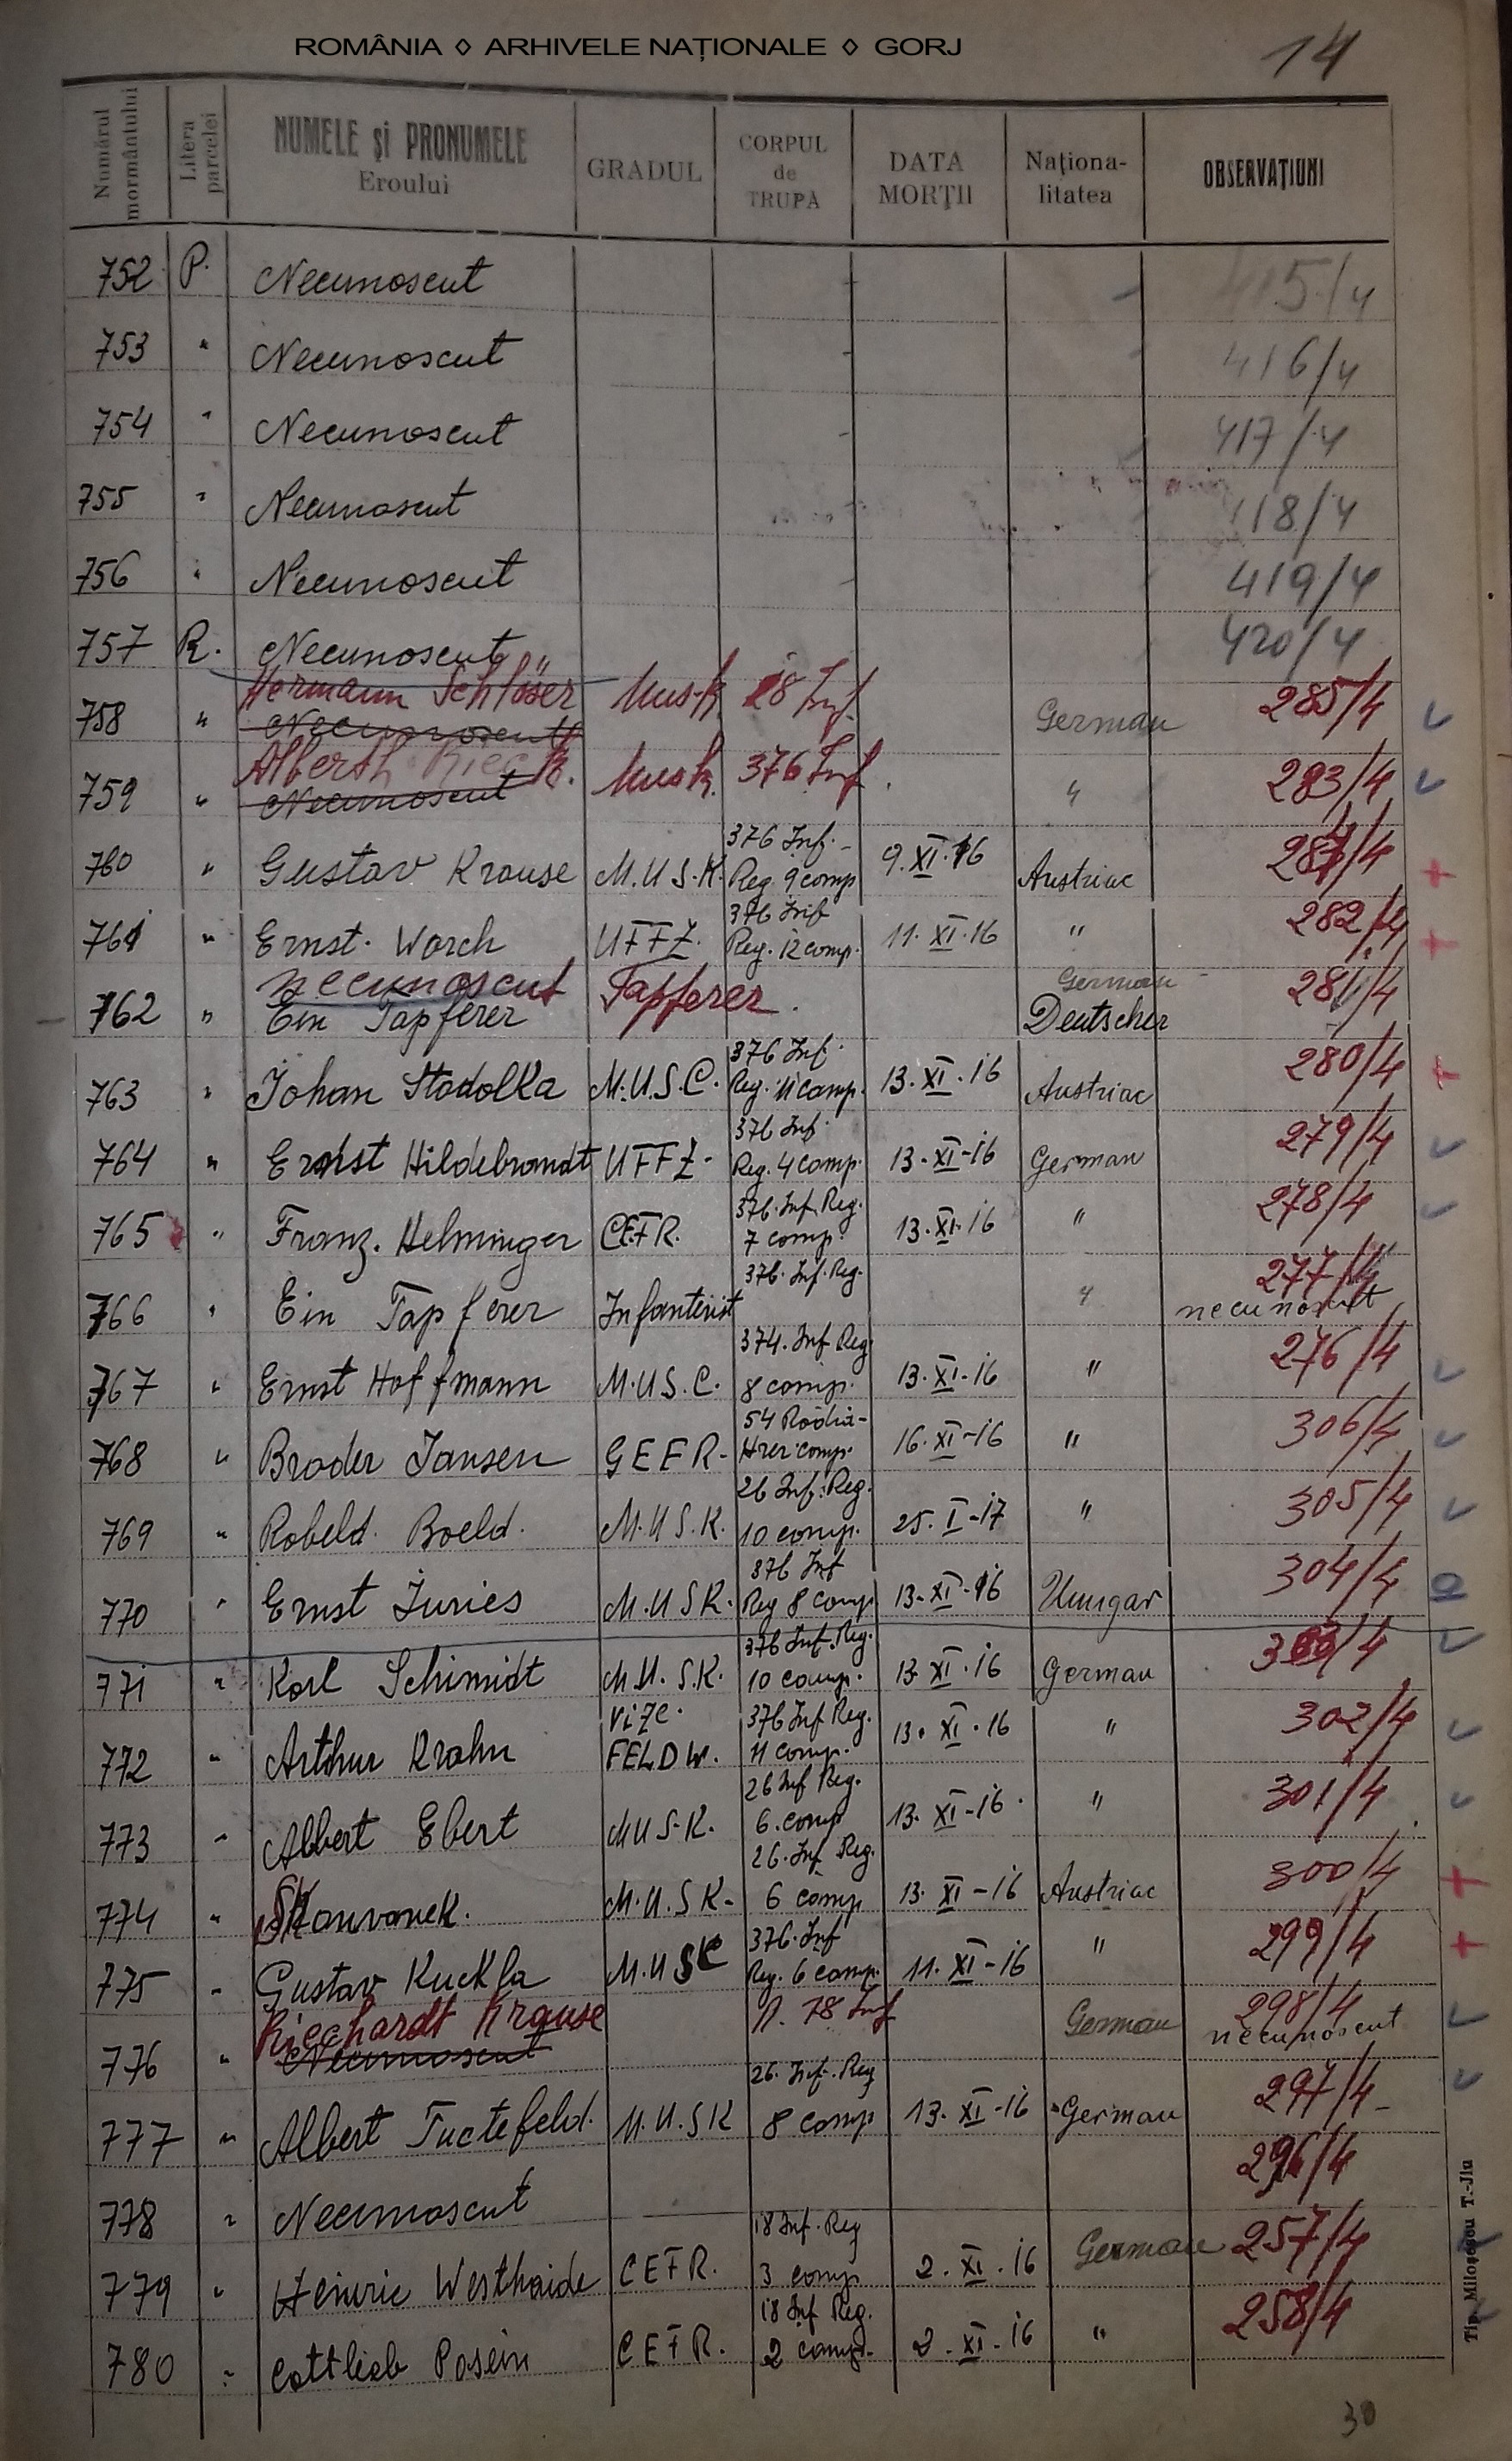 ROMÂNIA ◊ ARHIVELE NAȚIONALE ◊ GORJ
14
Numărul mormântului
Litera parcelei
NUMELE și PRONUMELE Eroului
GRADUL
CORPUL de TRUPĂ
DATA MORȚII
Naționalitatea
OBSERVAȚIUNI
752 P. Necunoscut 415/4
753 " Necunoscut 416/4
754 " Necunoscut 417/4
755 " Necunoscut 418/4
756 " Necunoscut 419/4
757 R. Necunoscut 420/4
Hermann Schlöser Musk 18 Inf.
758 " Necunoscut German 285/4
Alberth Rieck. Musk. 376 Inf.
759 " Necunoscut " 283/4
376 Inf.
760 " Gustav Krause M.U.S.K. Reg. 9 comp 9.XI.16 Austriac 284/4
376 Inf
761 " Ernst. Worch UFFZ. Reg. 12 comp. 11.XI.16 " 282/4
necunoscut Tapferer. German
762 " Ein Tapferer Deutscher 281/4
376 Inf.
763 " Johan Stodolka M.U.S.C. Reg. 11 comp. 13.XI.16 Austriac 280/4
376 Inf
764 " Ernst Hildebrandt UFFZ. Reg. 4 comp. 13.XI-16 German 279/4
376. Inf. Reg.
765 " Franz. Helminger CEFR. 7 comp. 13.XI.16 " 278/4
376. Inf. Reg.
277/4
766 " Ein Tapferer Infanterist " necunoscut
374. Inf Reg
767 " Ernst Hoffmann M.U.S.C. 8 comp. 13.XI-16 " 276/4
54
768 " Broder Jansen GEFR. comp. 16.XI-16 " 306/4
26 Inf. Reg.
769 " Robeld. Boeld. M.U.S.K. 10 comp. 25.I-17 " 305/4
376 Inf
770 " Ernst Juries M.U.S.K. Reg 8 comp 13.XI-16 Ungar 304/4
376 Inf. Reg.
771 " Karl Schimidt M.U.S.K. 10 comp. 13.XI.16 German 303/4
Vize. 376 Inf Reg.
772 " Arthur Krahn FELDW. 11 comp. 13.XI.16 " 302/4
26 Inf Reg.
773 " Albert Ebert MUS.K. 6. comp 13.XI-16. " 301/4
26. Inf Reg.
774 " Skouvanek. M.U.S.K. 6 comp 13.XI-16 Austriac 300/4
376. Inf
775 " Gustav Kuckla M.U.S.C Reg. 6 comp. 11.XI-16 " 299/4
Rieghardt Krause 78 Inf 298/4
776 " Necunoscut German necunoscut
26. Inf. Reg
777 " Albert Tuctefeld. M.U.SK 8 comp 13.XI-16 German 297/4
778 " Necunoscut 296/4
18 Inf. Reg
779 " Heinric Westhaide CEFR. 3 comp 2.XI.16 German 257/4
18 Inf Reg.
780 " Gottlieb Posein CEFR. 2 comp. 2.XI.16 " 258/4
Tip. Miloșescu T.-Jiu
30